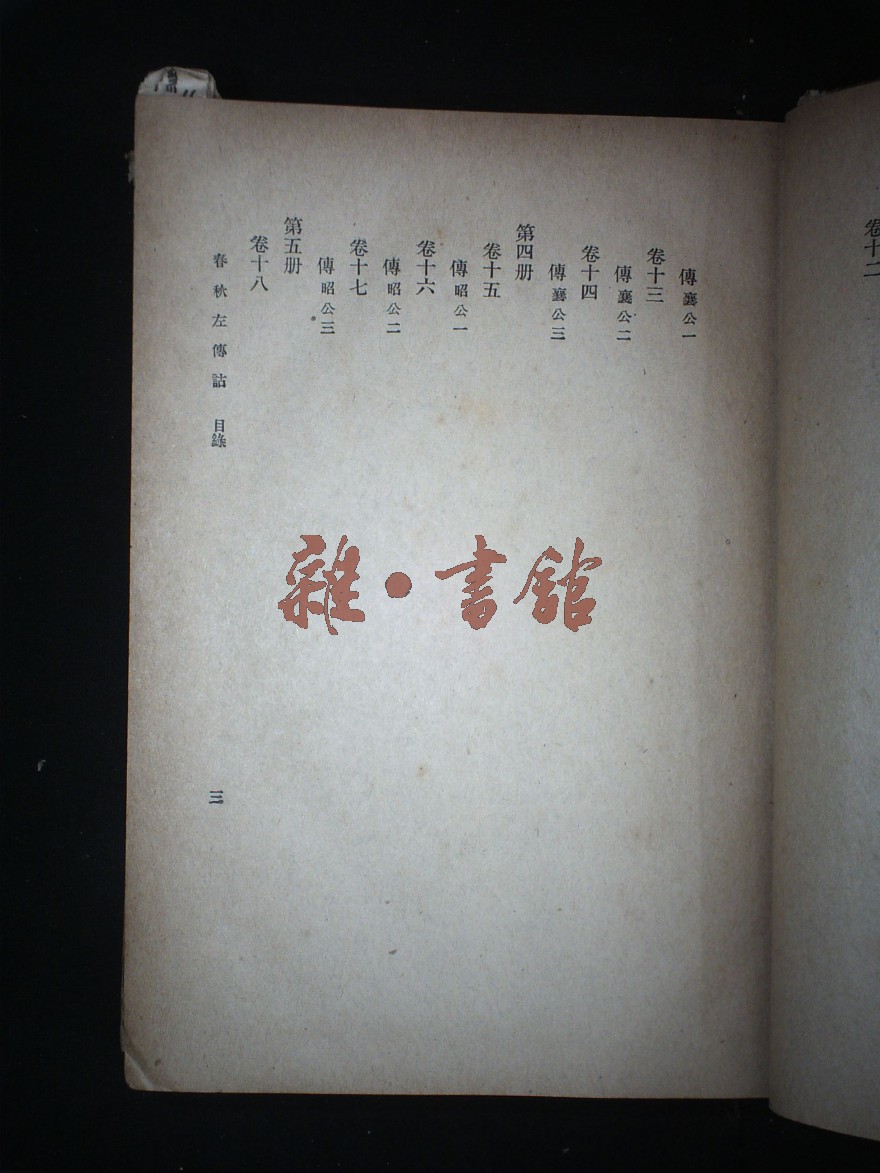 卷十二
傳襄公一
卷十三
傳襄公二
卷十四
傳襄公三
第四册
卷十五
傳昭公一
卷十六
傳昭公二
卷十七
傳昭公三
第五册
卷十八
春秋左傳詁 目錄
三
雜·書館